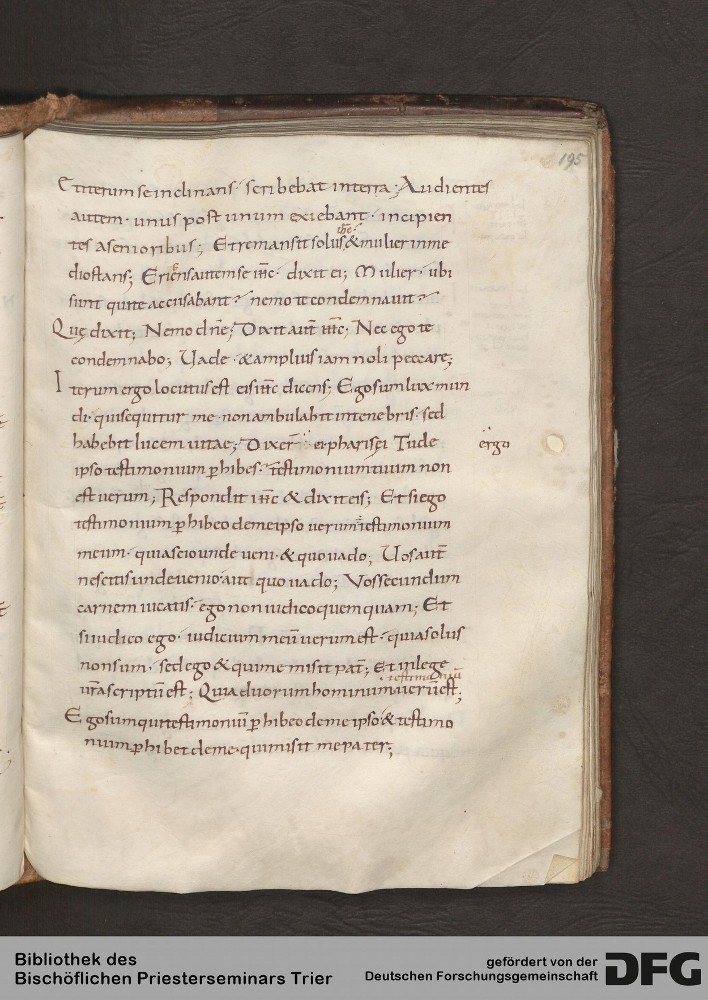 195
Et iterum se inclinans· scribebat in terra· Audientes
autem· unus post unum exiebant· incipien
tes a senioribus; Et remansit solus & mulier in me
ihc·
dio stans; Erigens autem se ihc· dixit ei; Mulier· ubi
sunt qui te accusabant? nemo te condemnavit?
Quę dixit; Nemo dñe; Dixit aut̄ ihc· Nec ego te
condemnabo; Uade· & amplius iam noli peccare;
Iterum ergo locutus est eis ihc dicens; Ego sum lux mun
di· qui sequitur me· non ambulabit in tenebris· sed
habebit lucem uitae; Dixer̄ ei pharisęi Tu de
ergo
ipso testimonium ꝑhibes· testimonium tuum non
est uerum; Respondit ihc & dixit eis; Et si ego
testimonium ꝑhibeo de me ipso uerum ÷ testimonium
meum· quia scio unde ueni· & quo uado; Uos aut̄
nescitis unde uenio aut quo uado; Vos secundum
carnem iudicatis· ego non iudico quemquam; Et
si iudico ego· iudicium meū uerum est· quia solus
non sum· sed ego & qui me misit pat̄; Et in lege
ur̄a scriptū est; Quia duorum hominum uerū est;
testimoniū
Ego sum qui testimoniū ꝑhibeo de me ipso & testimo
nium ꝑhibet de me· qui misit me pater;
Bibliothek des
Bischöflichen Priesterseminars Trier
gefördert von der
Deutschen Forschungsgemeinschaft
DFG